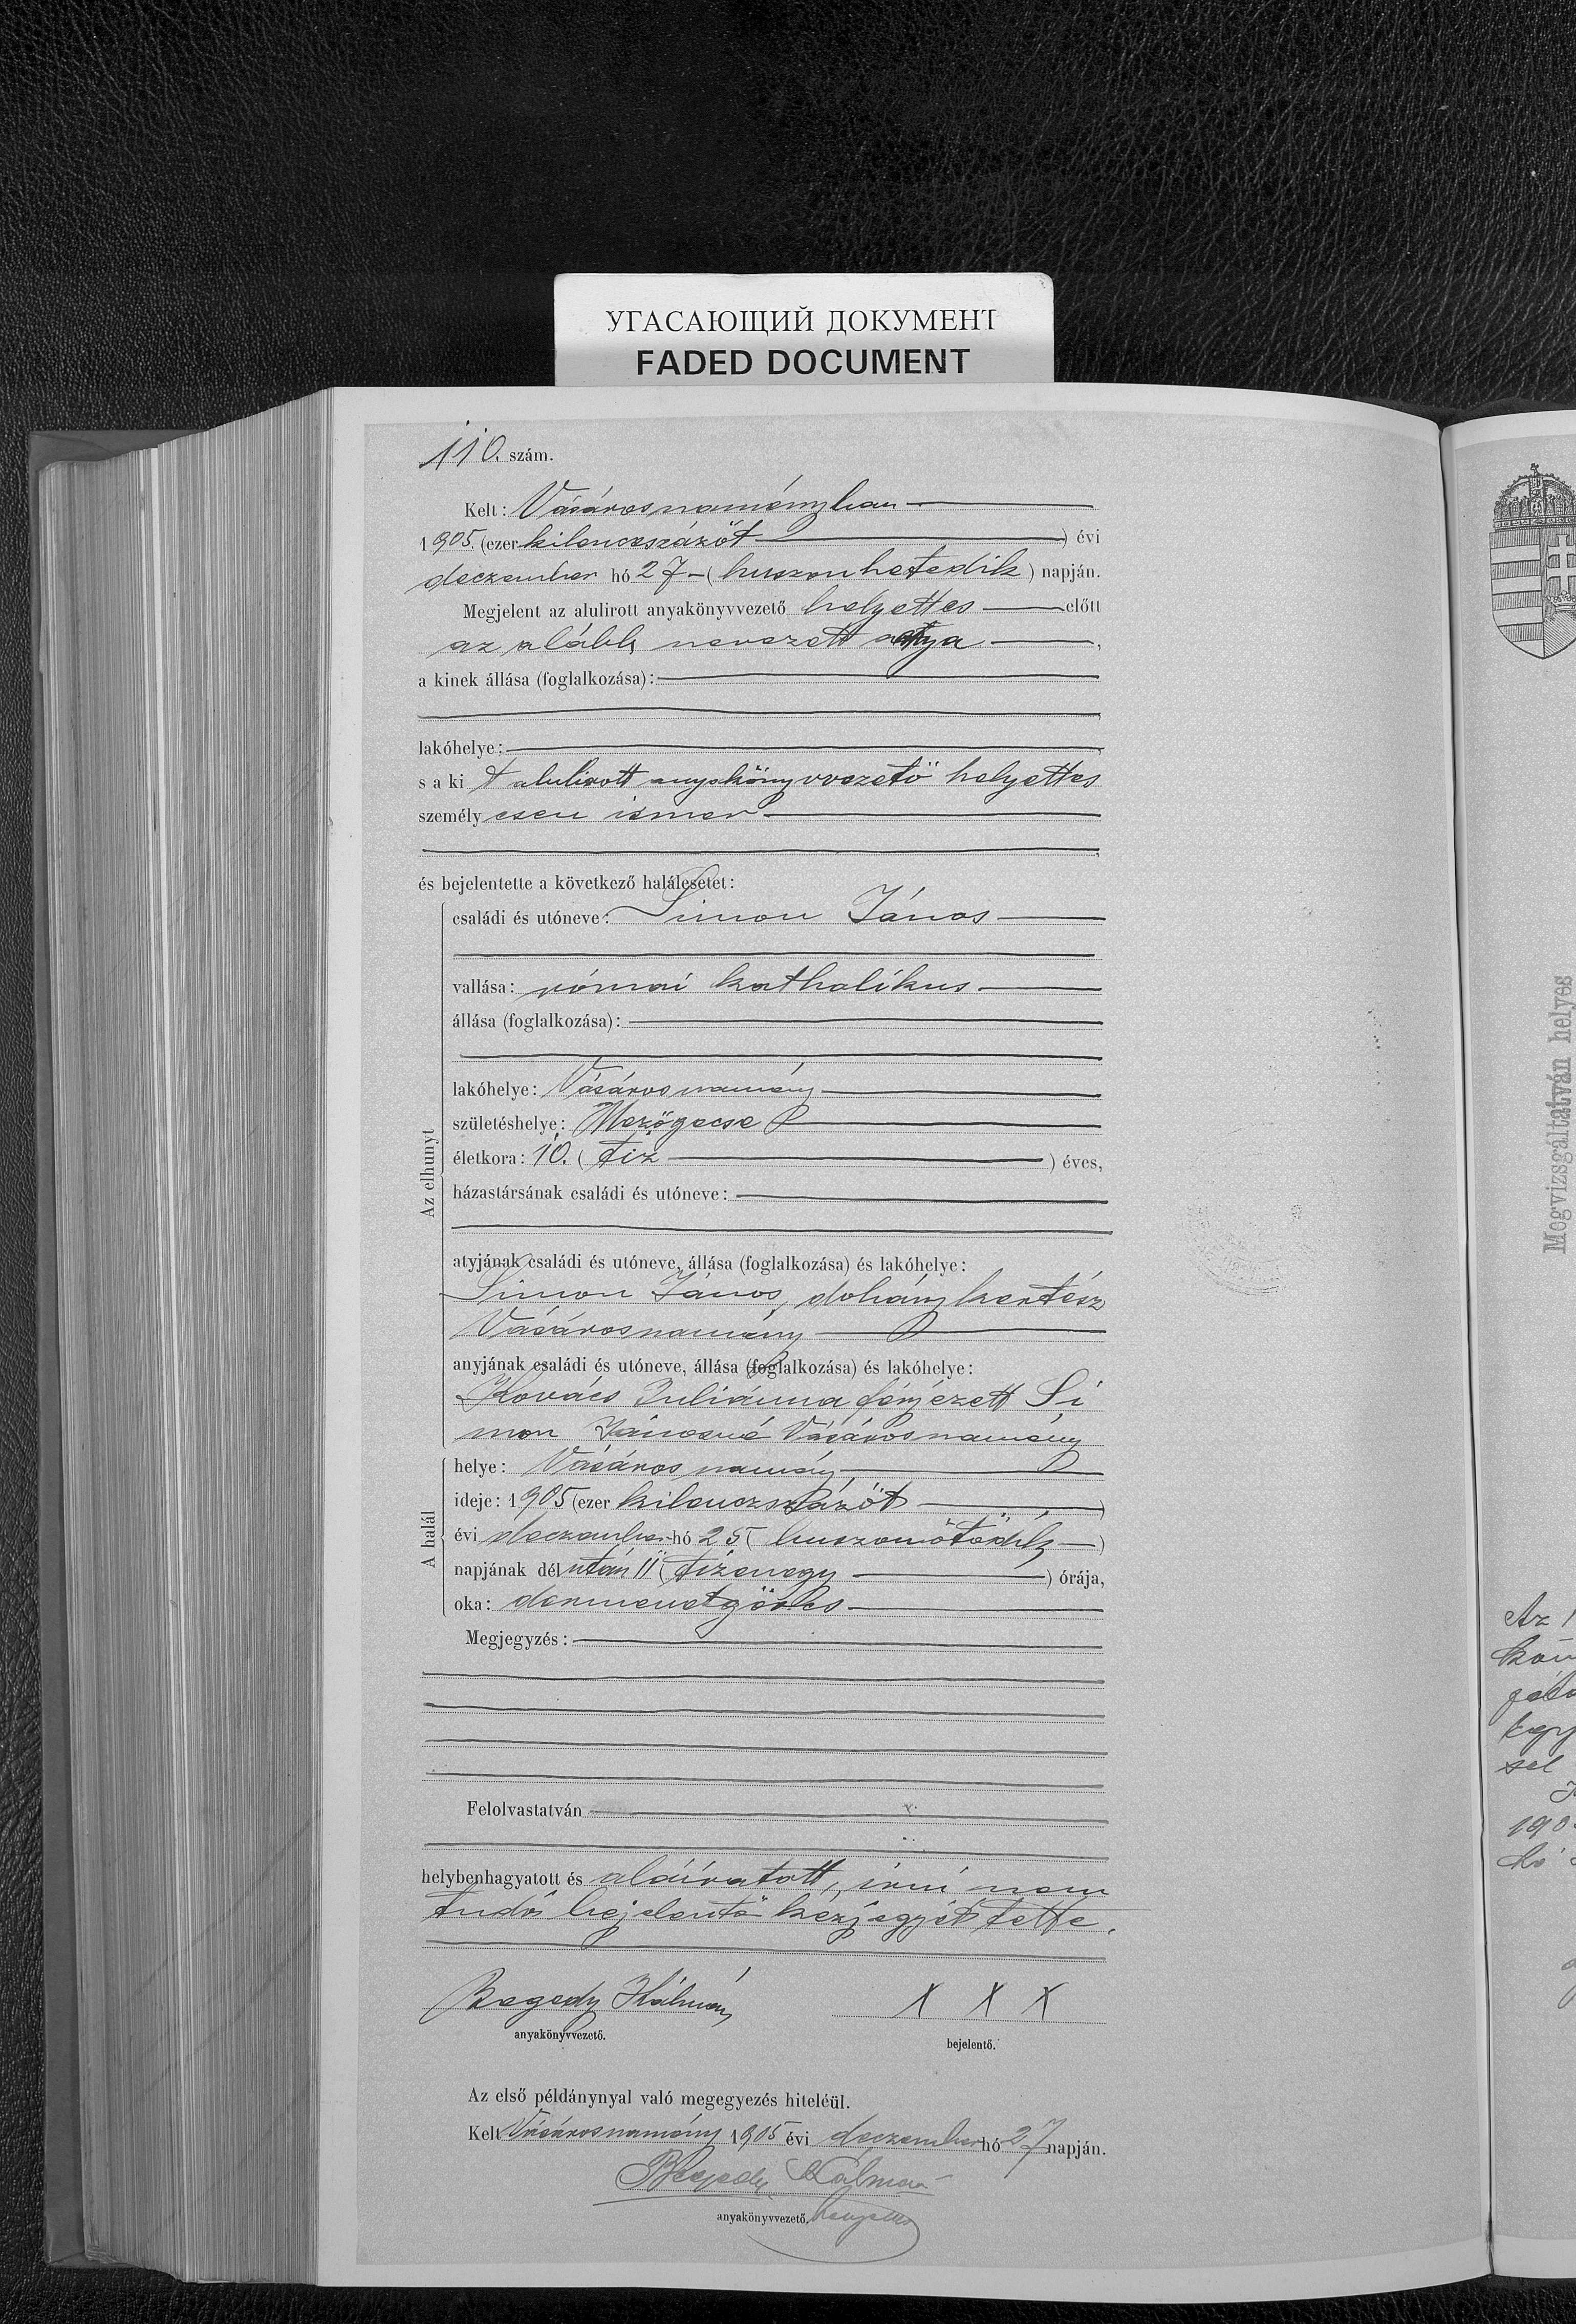 УГАСАЮЩИЙ ДОКУМЕНТ
FADED DOCUMENT
110. szám.
Kelt: Vásárosnaményban
1905. (ezer kilenczszázöt) évi
deczember hó 27 (huszonhetedik) napján.
Megjelent az alulirott anyakönyvvezető helyettes előtt
az alább nevezett atya,
a kinek állása (foglalkozása):
lakóhelye:
s a ki t alulirott anyakönyvvezető helyettes
személyesen ismer
és bejelentette a következő halálesetet:
Az elhunyt
családi és utóneve: Simon János
vallása: római katholikus
állása (foglalkozása):
lakóhelye: Vásárosnamény
születéshelye: Mezőgecse
életkora: 10. (tiz) éves,
házastársának családi és utóneve:
atyjának családi és utóneve, állása (foglalkozása) és lakóhelye:
Simon János, dohánykertész
Vásárosnamény
anyjának családi és utóneve, állása (foglalkozása) és lakóhelye:
Kovács Juliánna férjezett Si
mon Jánosné Vásárosnamény
A halál
helye: Vásárosnamény
ideje: 1905 (ezer kilenczszázöt)
évi deczember hó 25 (huszonötödik)
napjának délután 11 (tizenegy) órája,
oka: dermenetgörcs
Megjegyzés:
Felolvastatván
helybenhagyatott és aláíratott, írni nem
tudó bejelentő kézjegyét tette.
Begedy Kálmán X X X
anyakönyvvezető. bejelentő.
Az első példánynyal való megegyezés hiteléül.
Kelt Vásárosnamény 1905 évi deczember hó 27 napján.
Begedy Kálmán
anyakönyvvezető. helyettes
Megvizsgáltatván helyes
Az 1
190